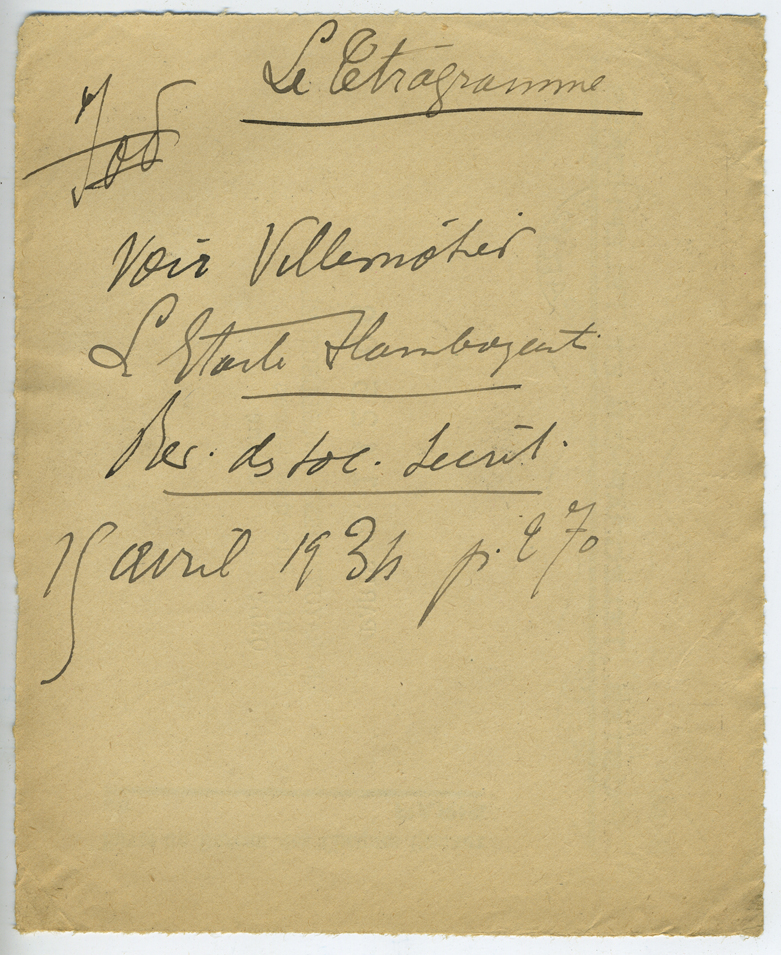 Le Tétragramme
Jod
Voir Villermôtier
L'Etoile Flamboyant
Rev. ds soc. secrèt.
15 avril 1934 p. 270